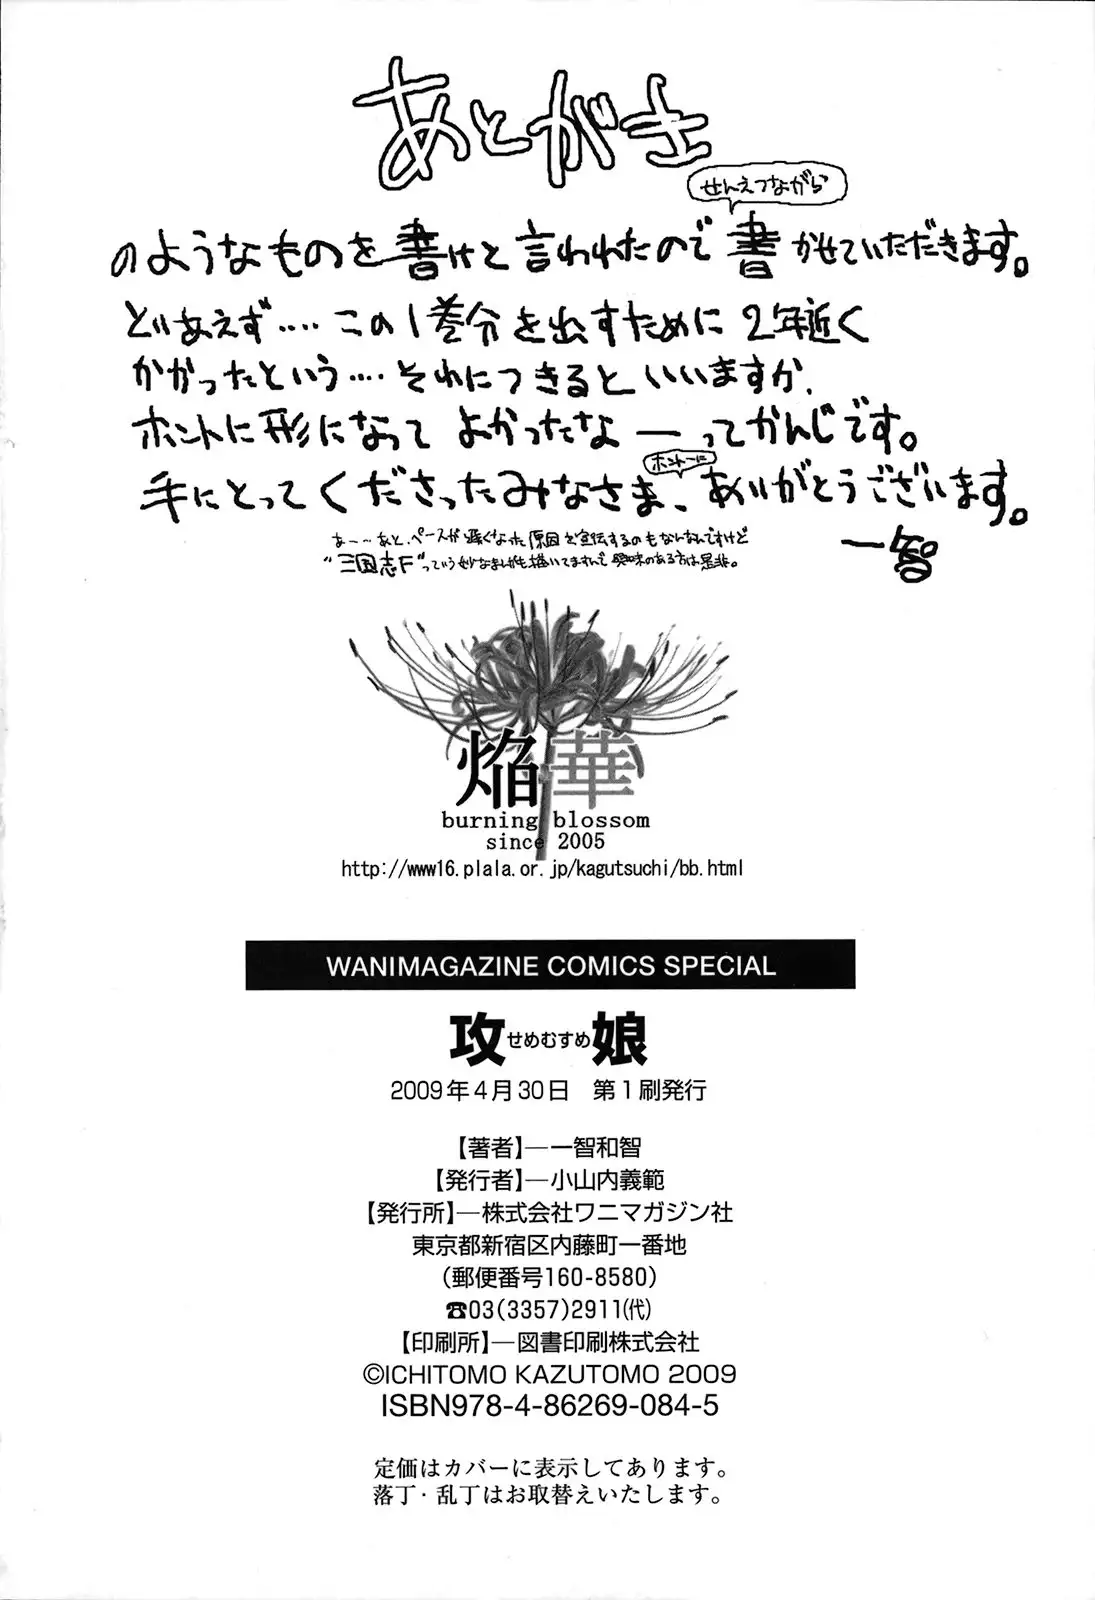 あとがき
せんえつながら
のようなものを書けと言われたので書かせていただきます。
とりあえず‥‥この1巻分を出すために2年近く
かかったという‥‥それにつきるといいますか、
ホントに形になってよかったなーってかんじです。
ホントーに
手にとってくださったみなさま、ありがとうございます。
あー…あと、ペースが遅くなった原因を宣伝するのもなんなんですけど
"三国志F"っていう妙なまんがも描いてますんで興味のある方は是非。
一智
焔華
burning blossom
since 2005
http://www16.plala.or.jp/kagutsuchi/bb.html
WANIMAGAZINE COMICS SPECIAL
攻せめむすめ娘
2009年4月30日 第1刷発行
【著者】―一智和智
【発行者】―小山内義範
【発行所】―株式会社ワニマガジン社
東京都新宿区内藤町一番地
(郵便番号160-8580)
☎03(3357)2911㈹
【印刷所】―図書印刷株式会社
©ICHITOMO KAZUTOMO 2009
ISBN978-4-86269-084-5
定価はカバーに表示してあります。
落丁・乱丁はお取替えいたします。